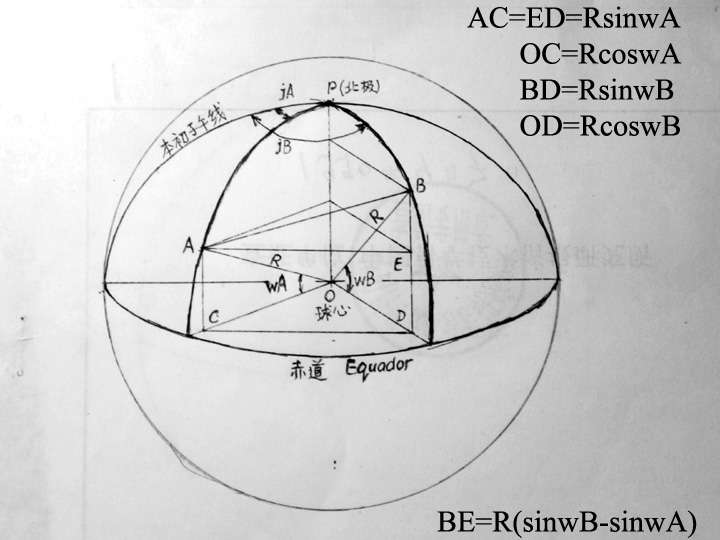 AC=ED=RsinwA
OC=RcoswA
BD=RsinwB
OD=RcoswB
jA
P(北极)
本初子午线
jB
B
R
A
R
E
wA
wB
O
球心
C
D
赤道 Equador
BE=R(sinwB-sinwA)